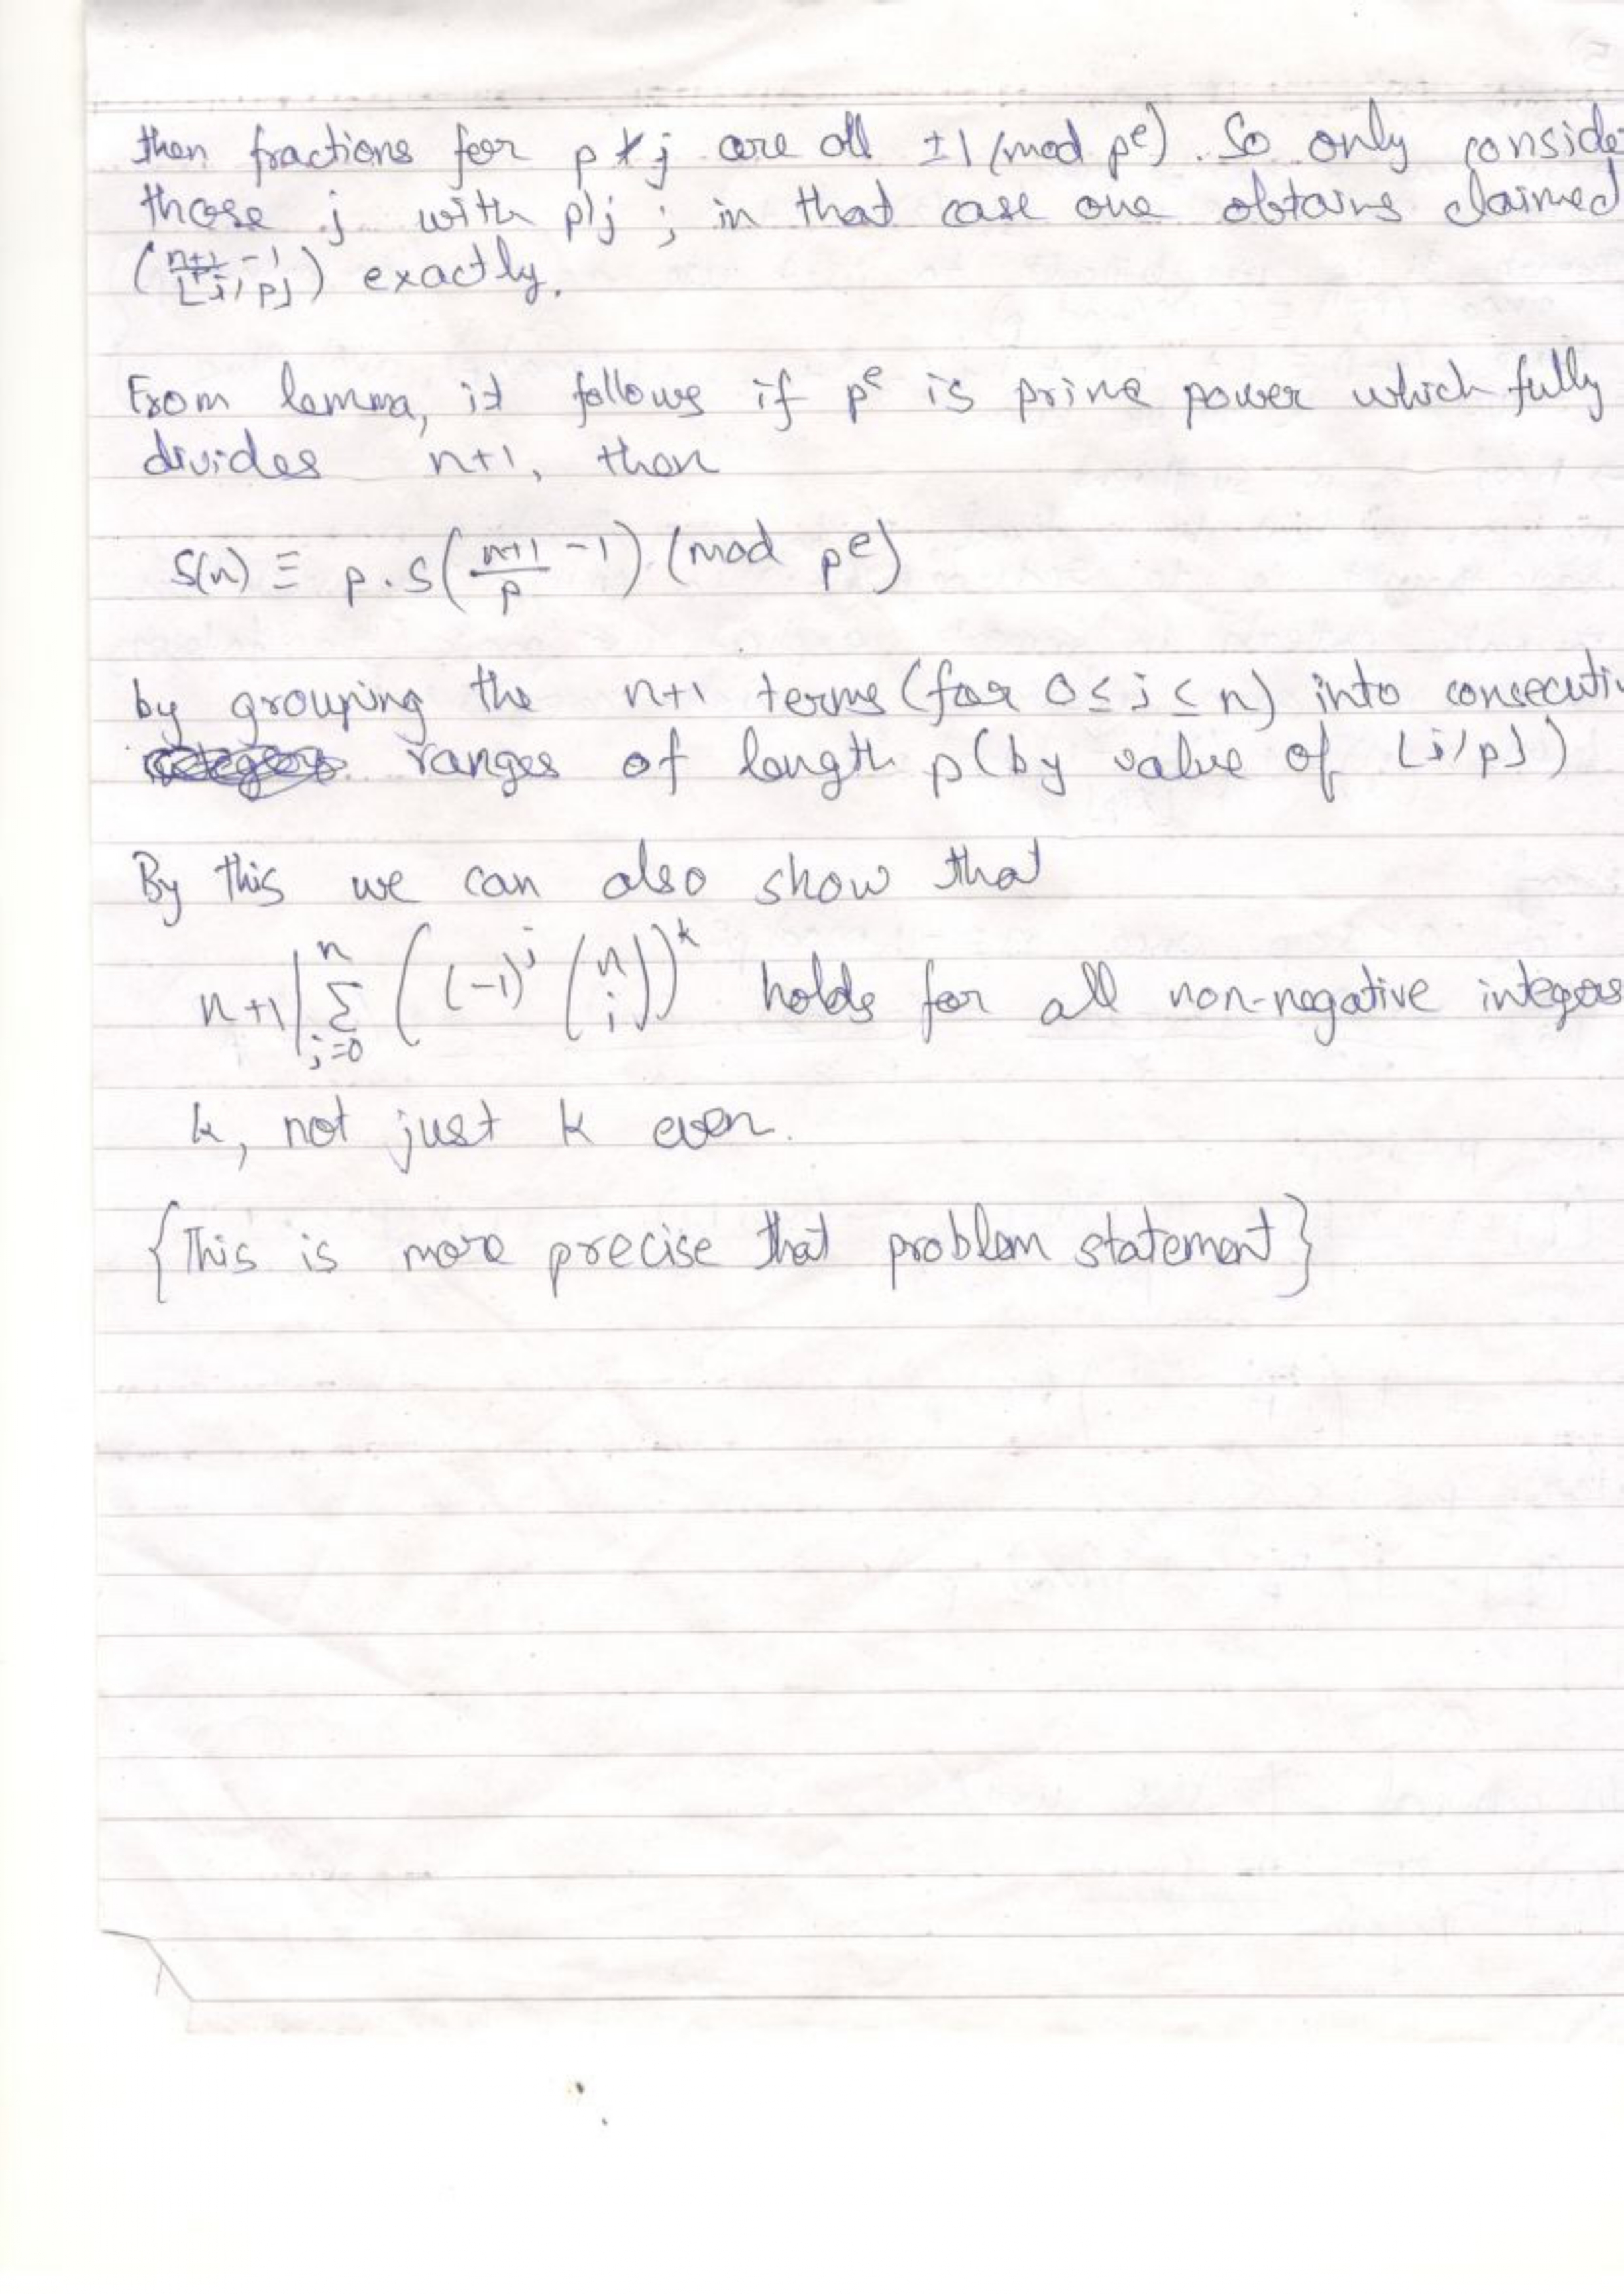 then fractions for p ∤ j are all ±1 (mod pᵉ). So only conside
those j with p|j ; in that case one obtains claimed
((n+1)/p - 1 ⌊i/p⌋) exactly.
From lemma, it follows if pᵉ is prime power which fully
divides n+1, then
S(n) ≡ p . S((n+1)/p - 1) (mod pᵉ)
by grouping the n+1 terms (for 0 ≤ i ≤ n) into consecuti
ranges of length p (by value of ⌊i/p⌋)
By this we can also show that
n+1 | Σ_{i=0}^{n} ((-1)^i (n i))^k holds for all non-negative integers
k, not just k even.
{This is more precise that problem statement}